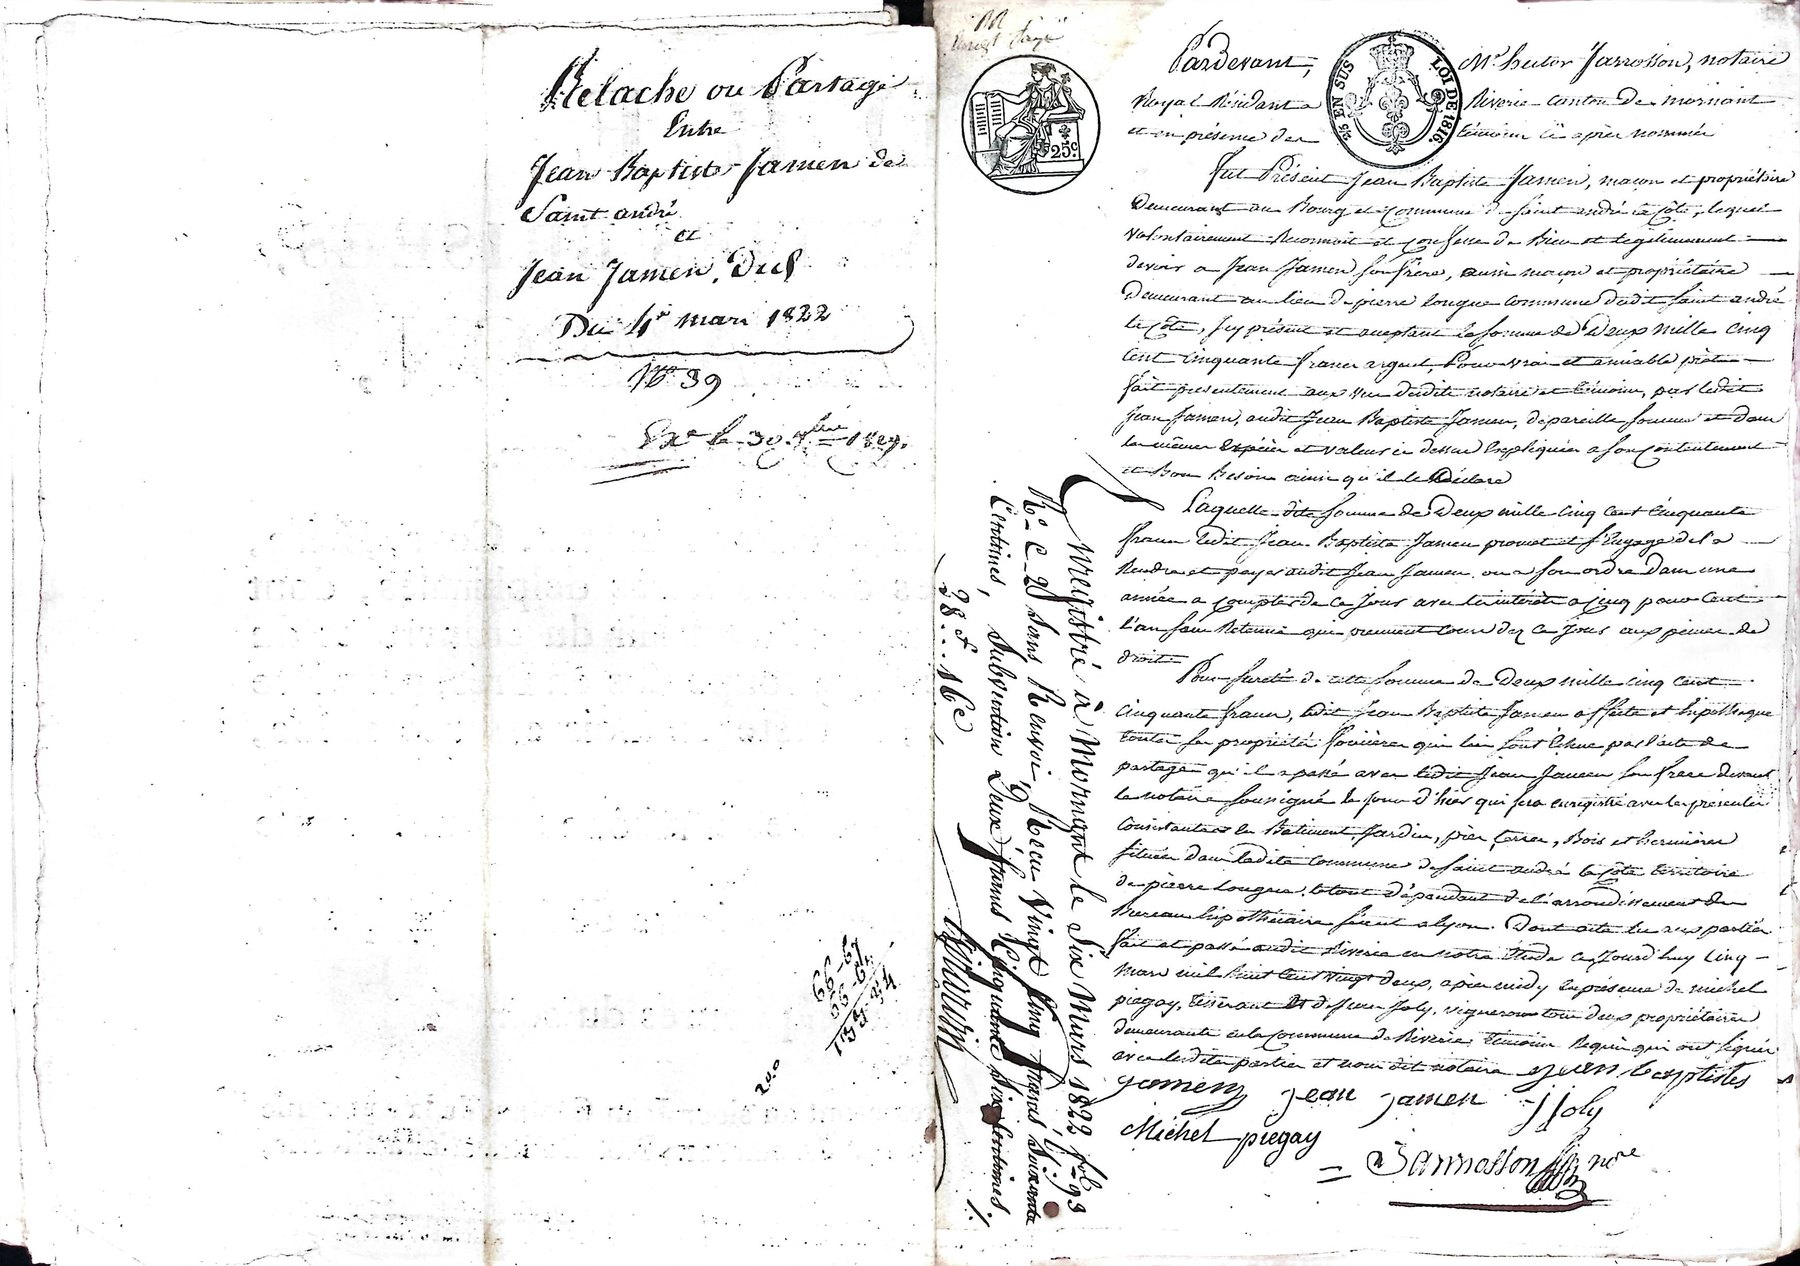 Relache ou Partage
Entre
Jean Baptiste Jamen de
Saint andré
et
Jean Jamen, Dud.
Du 4e mars 1822
No 39
Exe le 30 1829.
66-67
66-67
133-34
200
25 EN SUS
LOI DE 1816.
25c.
Pardevant, Me hector Jarrosson, notaire
Royal Résidant a Riverie canton de mornant
et en présence des témoins ci après nommés
fut Présent Jean Baptiste Jamen, maçon et propriétaire
Demeurant au Bourg et Commune de saint andré la Côte, lequel
volontairement Reconnoit et Confesse de Bien et légitimement
devoir a Jean Jamen son frère, aussi maçon et propriétaire
Demeurant au lieu de pierre longue commune dudit saint andré
la Côte, Icy présent et acceptant la somme de Deux mille cinq
cent cinquante francs argent, Pour vrai et amiable prêt
fait presentement aux vue desdits notaire et témoins, par ledit
Jean Jamen, audit Jean Baptiste Jamen, de pareille somme et dans
les mêmes Espèces et valeurs ci dessus Expliquées a son Contentement
et Bon Besoin ainsi qu'il le Déclare
Laquelle dite somme de Deux mille cinq cent cinquante
francs ledit Jean Baptiste Jamen promet et s'Engage de la
Rendre et payer audit Jean Jamen ou a son ordre Dans une
année a compter de ce Jour avec les intérêts a cinq pour Cent
l'an sans Retenue qui prennent cours dez ce Jour aux peines de
droit
Pour sureté de cette somme de Deux mille cinq cent
cinquante francs, ledit Jean Baptiste Jamen affecte et hipothèque
toutes ses propriétés foncières qui lui sont Echue par l'acte de
partage qu'il a passé avec ledit Jean Jamen son frere devant
le notaire soussigné le jour d'hier qui sera enregistré avec les présentes
Consistantes en Batiment, Jardin, prés, terres, Bois et hermières
situées dans ladite commune de saint andré la Côte territoire
de pierre Longue, le tout dépendant de l'arrondissement du
Bureau hipothécaire séant a lyon. Dont acte lu aux parties
fait et passé audit Riverie en notre Etude ce Jourd'huy Cinq
mars mil huit cent vingt deux, après midy En présence de michel
piegay, tisserant Et de Jean Joly, vigneron tous deux propriétaires
demeurants en la Commune de Riverie, témoins Requis qui ont signés
avec lesdites parties et nous dit notaire Jean baptistes
Jamen Jean Jamen J Joly
Michel piegay
Jarrosson nre
Enregistré à Mornant le Six Mars 1822 fol 93
Ro C 2 Sans Renvoi, Reçu Vingt Cinq francs Soixante
Centimes, Subvention Deux francs Cinquante Six Centimes,
28f...16c